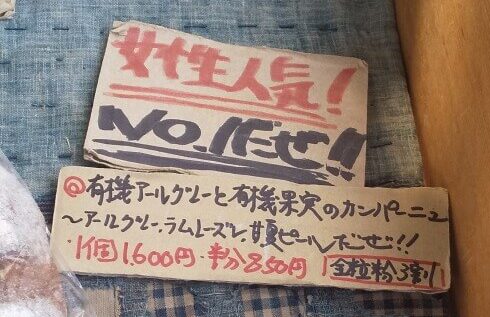 女性人気!
NO.1だぜ!!
@有機アールグレーと有機果実のカンパーニュ
〜アールグレー、ラムレーズン、甘夏ピールだぜ!!
・1個1,600円・半分850円 全粒粉3割